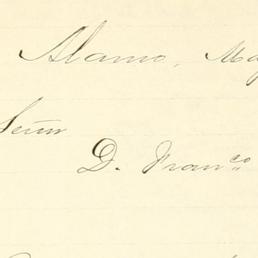 Alamo, May
Señor
D. Franco